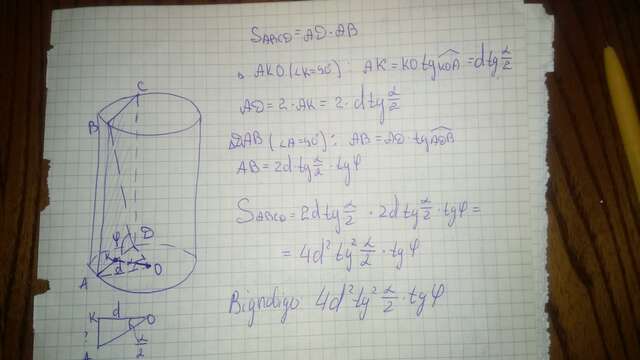 S_ABCD = AD · AB
AKO (∠K=90°): AK = KO tg KOA = d tg α/2
AD = 2 · AK = 2 · d tg α/2
DAB (∠A=90°): AB = AD tg ADB
AB = 2d tg α/2 · tg φ
S_ABCD = 2d tg α/2 · 2d tg α/2 · tg φ =
= 4d² tg² α/2 · tg φ
Bigndigo 4d² tg² α/2 · tg φ
C
B
φ D
K
d O
A
K d O
?
α/2
A